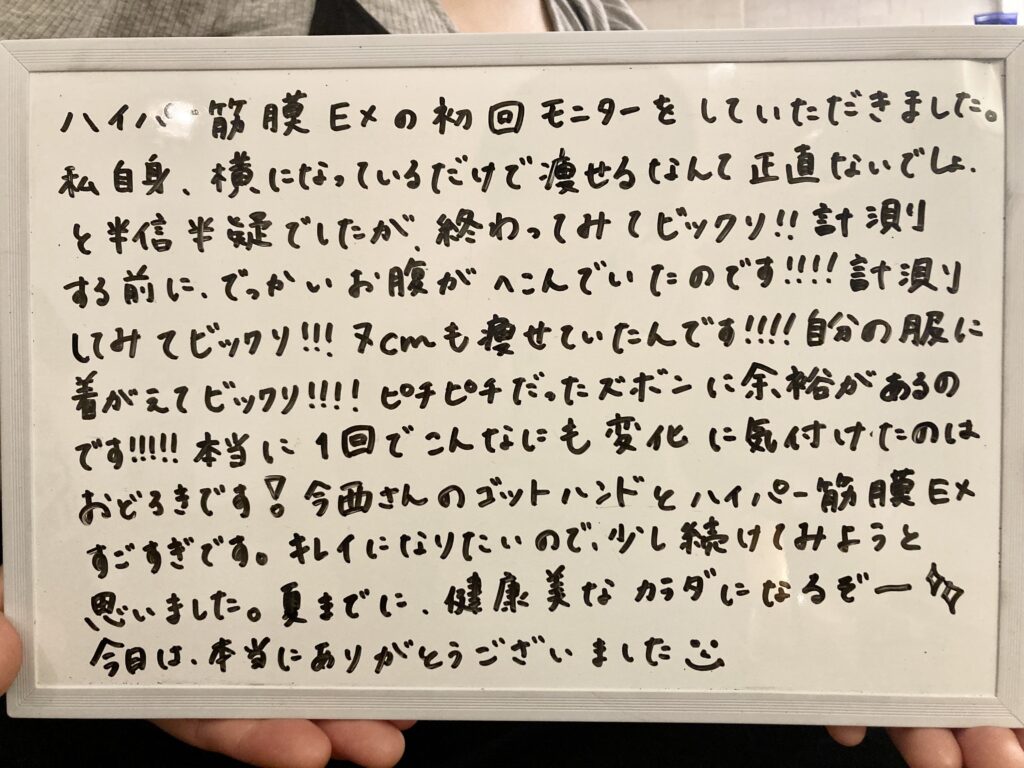 ハイパー筋膜EXの初回モニターをしていただきました。
私自身、横になっているだけで痩せるなんて正直ないでしょ、
と半信半疑でしたが、終わってみてビックリ!!計測
する前に、でっかいお腹がへこんでいたのです!!!!計測
してみてビックリ!!!7cmも痩せていたんです!!!!自分の服に
着がえてビックリ!!!!ピチピチだったズボンに余裕があるの
です!!!!!本当に1回でこんなにも変化に気付けたのは
おどろきです!今西さんのゴットハンドとハイパー筋膜EX
すごすぎです。キレイになりたいので、少し続けてみようと
思いました。夏までに、健康美なカラダになるぞー
今日は、本当にありがとうございました